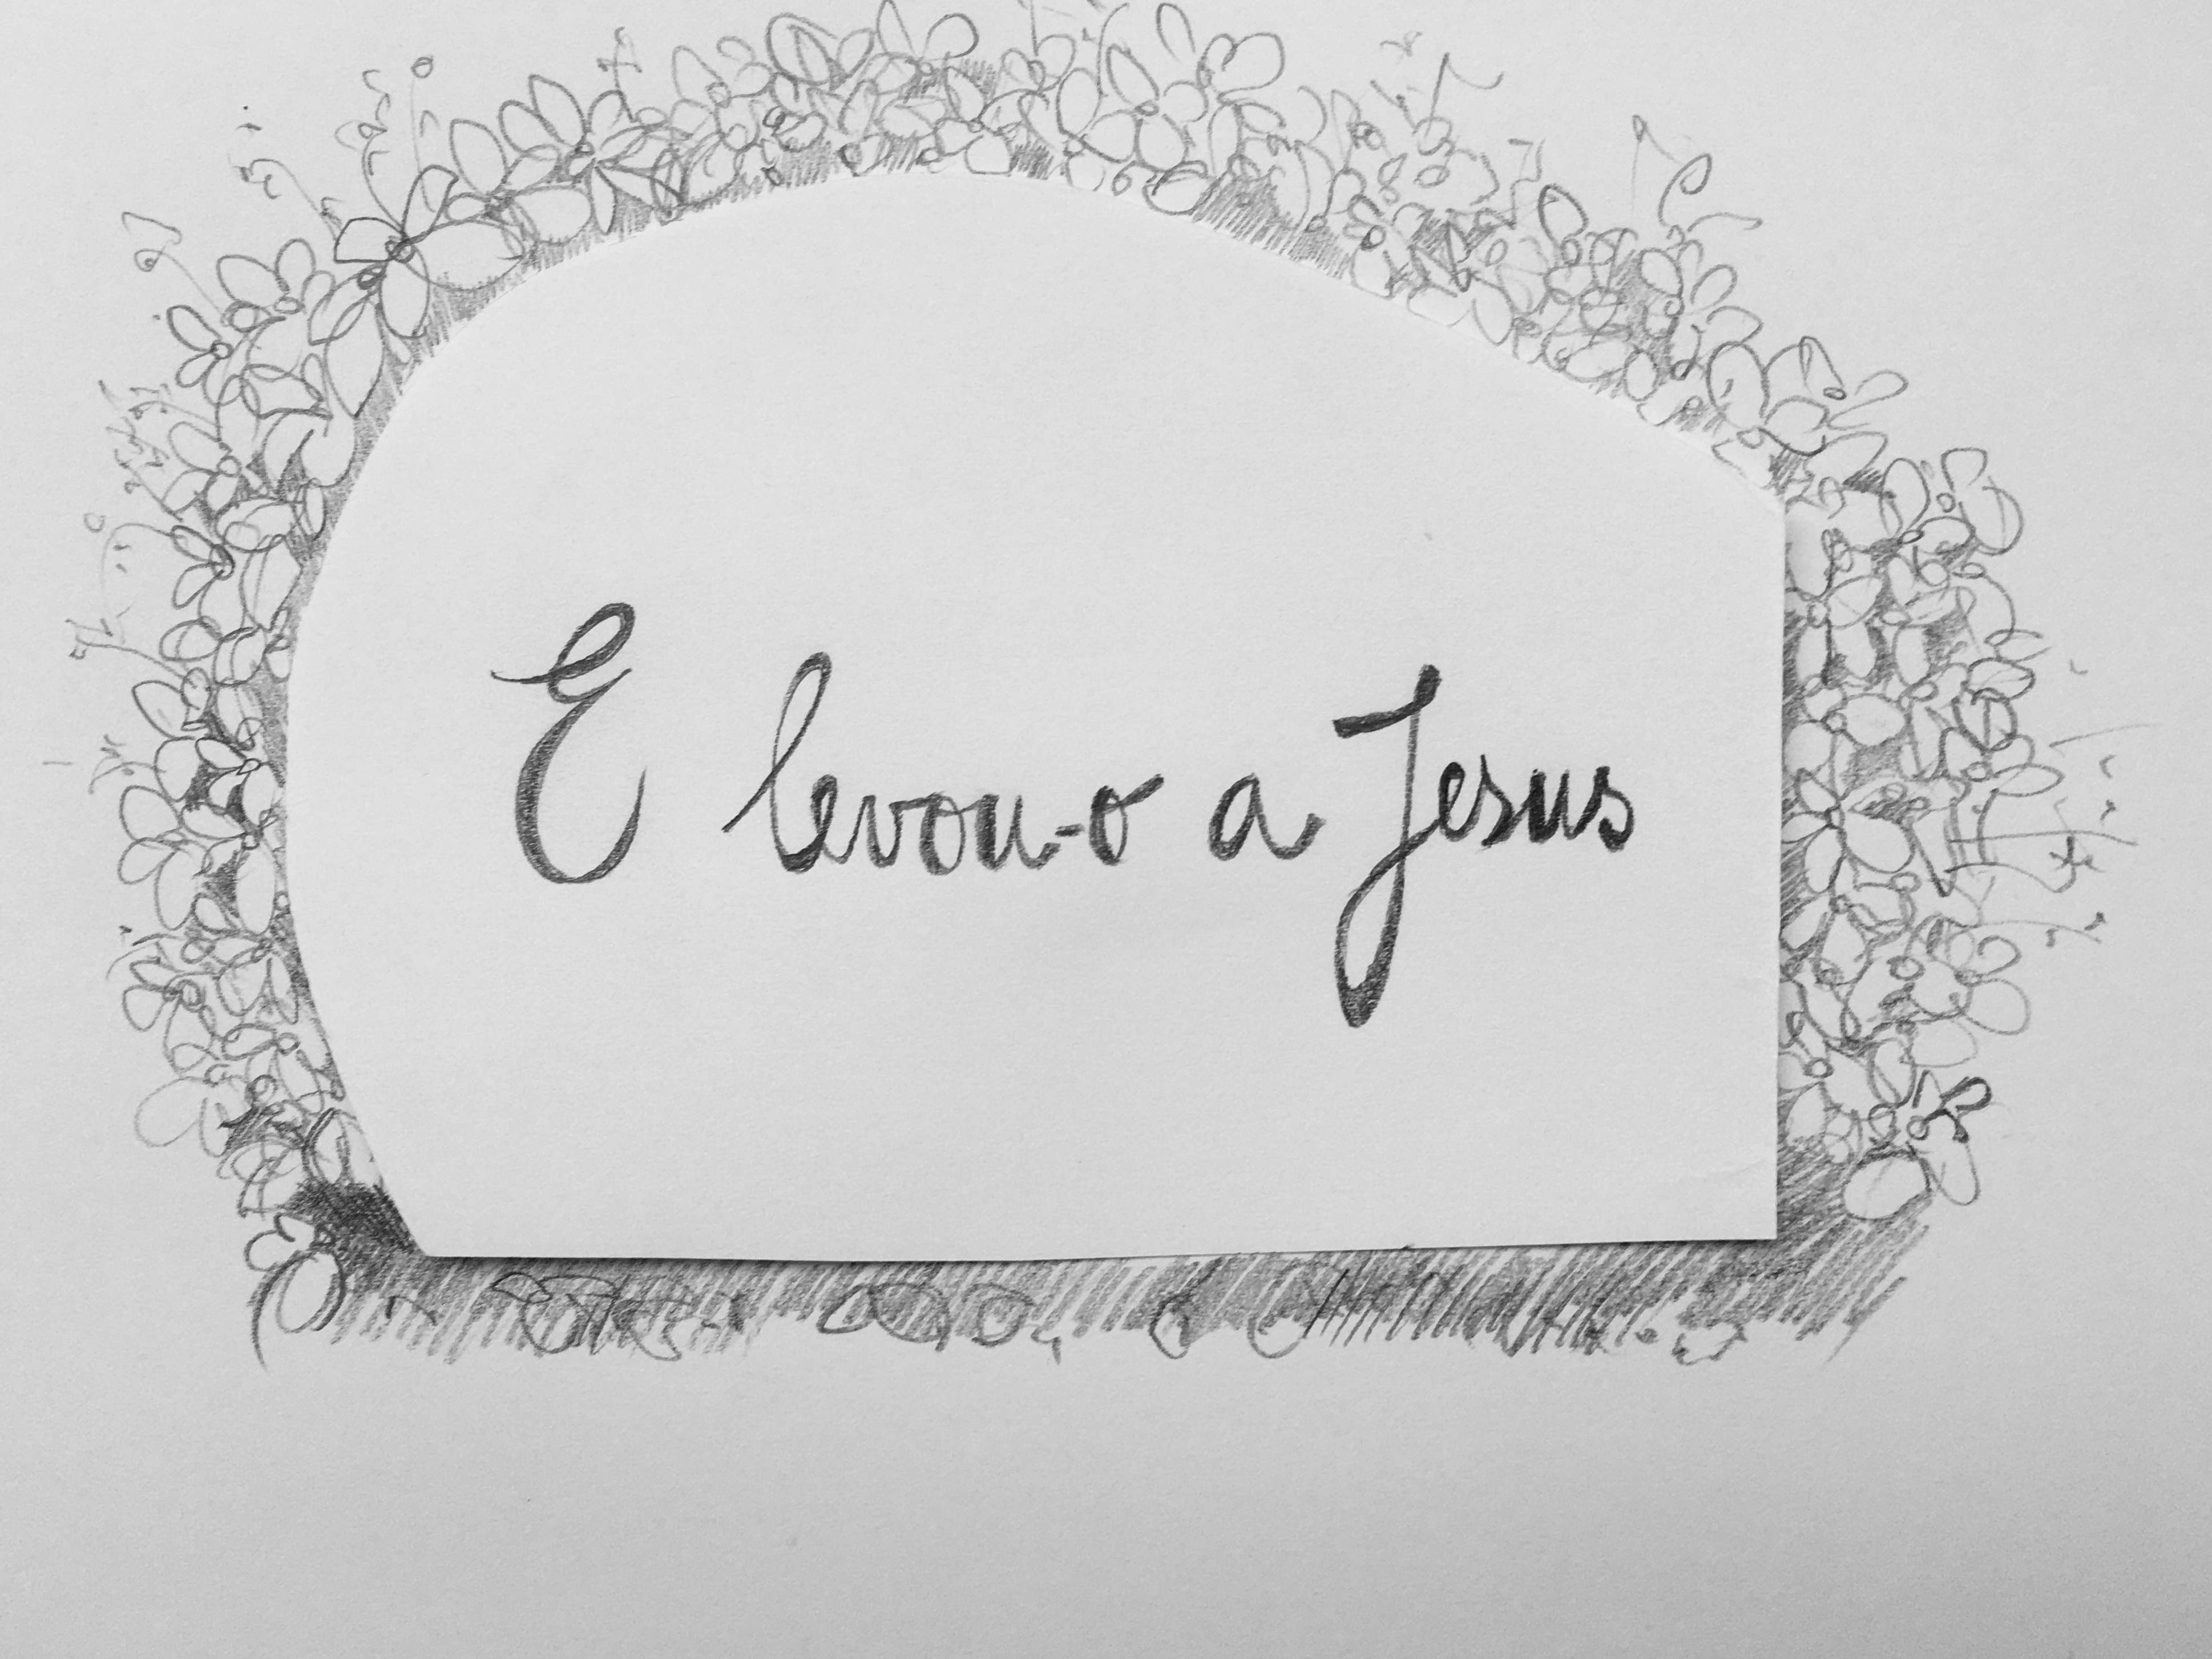 E levou-o a Jesus